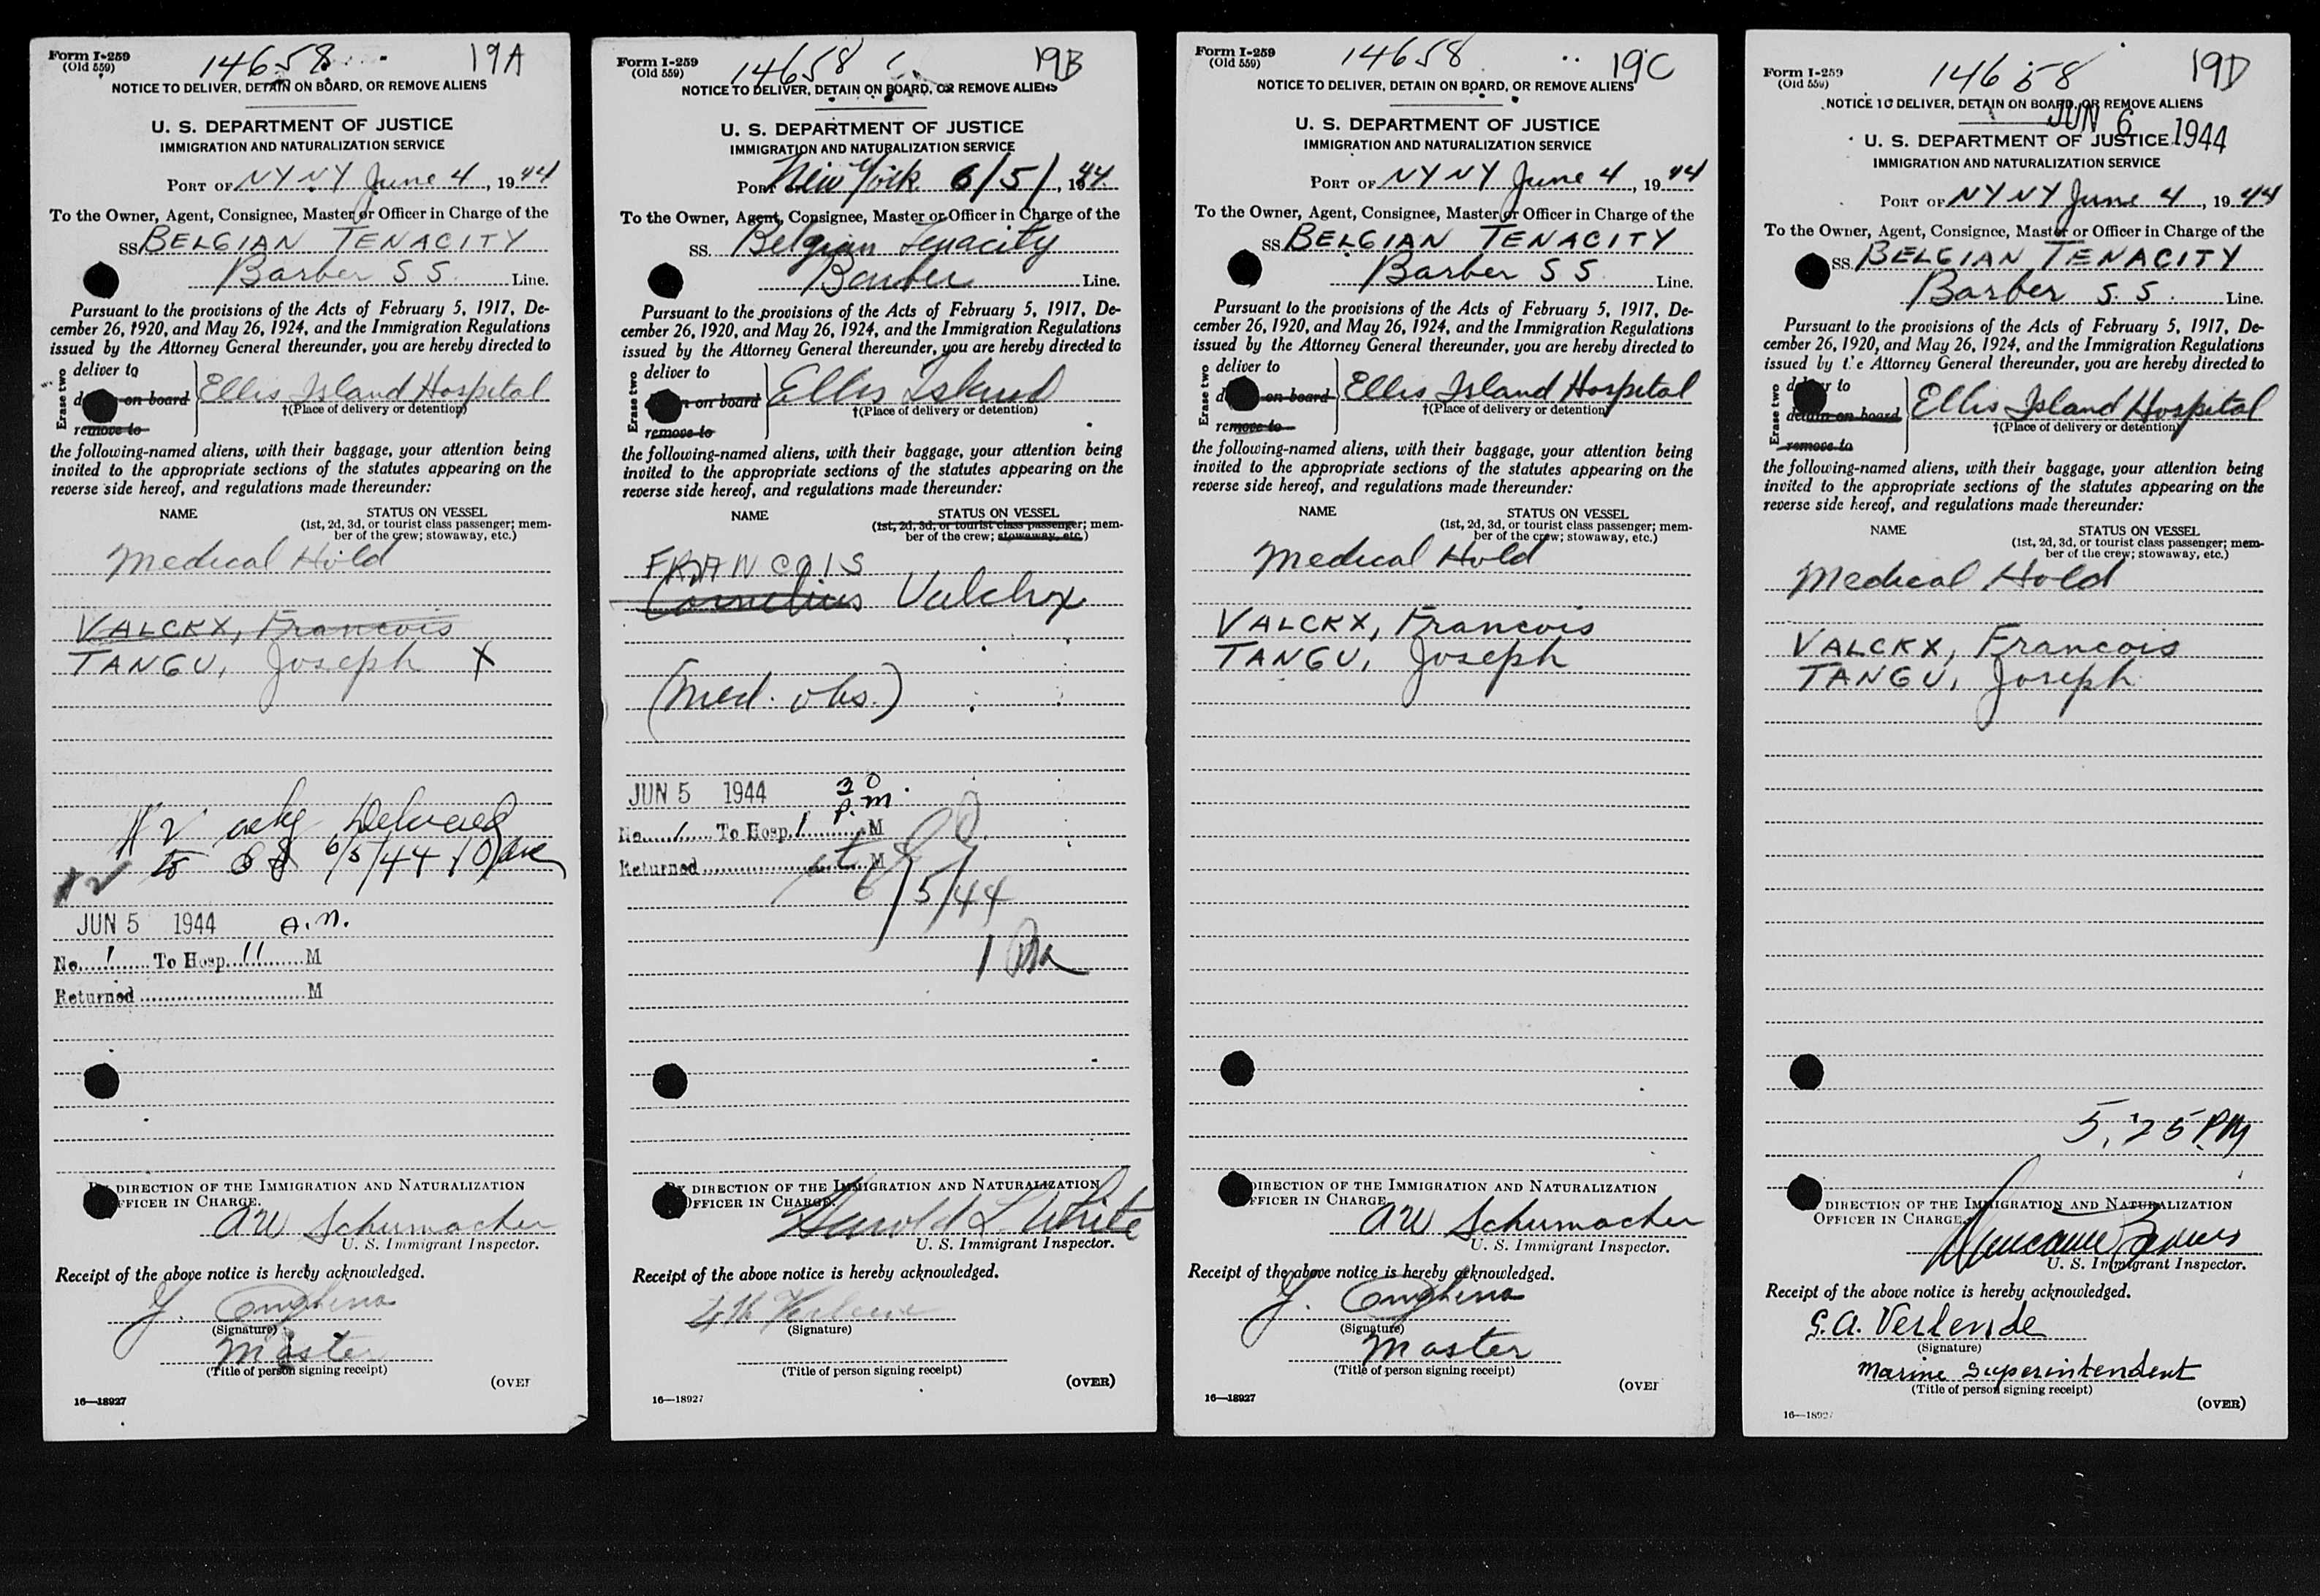 Form I-259
(Old 559)
14658
19A
NOTICE TO DELIVER, DETAIN ON BOARD, OR REMOVE ALIENS
U. S. DEPARTMENT OF JUSTICE
IMMIGRATION AND NATURALIZATION SERVICE
PORT OF NY NY June 4, 1944
To the Owner, Agent, Consignee, Master or Officer in Charge of the
SS. BELGIAN TENACITY
Barber S S. Line.
Pursuant to the provisions of the Acts of February 5, 1917, De-
cember 26, 1920, and May 26, 1924, and the Immigration Regulations
issued by the Attorney General thereunder, you are hereby directed to
Erase two
deliver to
on board
remove to
Ellis Island Hospital
†(Place of delivery or detention)
the following-named aliens, with their baggage, your attention being
invited to the appropriate sections of the statutes appearing on the
reverse side hereof, and regulations made thereunder:
NAME
STATUS ON VESSEL
(1st, 2d, 3d, or tourist class passenger; mem-
ber of the crew; stowaway, etc.)
Medical Hold
VALCKX, Francois
TANGU, Joseph X
# 2 only Delivered
6/5/44 10
JUN 5 1944 A.M.
No. 1 To Hosp. 11 M
Returned M
BY DIRECTION OF THE IMMIGRATION AND NATURALIZATION
OFFICER IN CHARGE.
AW Schumacher
U. S. Immigrant Inspector.
Receipt of the above notice is hereby acknowledged.
(Signature)
Master
(Title of person signing receipt)
(OVER
16—18927
Form I-259
(Old 559)
14658
19B
NOTICE TO DELIVER, DETAIN ON BOARD, OR REMOVE ALIENS
U. S. DEPARTMENT OF JUSTICE
IMMIGRATION AND NATURALIZATION SERVICE
PORT New York 6/5/, 1944.
To the Owner, Agent, Consignee, Master or Officer in Charge of the
SS. Belgian Tenacity
Barber Line.
Pursuant to the provisions of the Acts of February 5, 1917, De-
cember 26, 1920, and May 26, 1924, and the Immigration Regulations
issued by the Attorney General thereunder, you are hereby directed to
Erase two
deliver to
on board
remove to
Ellis Island
†(Place of delivery or detention)
the following-named aliens, with their baggage, your attention being
invited to the appropriate sections of the statutes appearing on the
reverse side hereof, and regulations made thereunder:
NAME
STATUS ON VESSEL
(1st, 2d, 3d, or tourist class passenger; mem-
ber of the crew; stowaway, etc.)
FRANCOIS
Cornelius Valckx
(Med. obs.)
JUN 5 1944 30 P.M.
No. 1 To Hosp. 1 M
Returned M
6/5/44
1 PM
BY DIRECTION OF THE IMMIGRATION AND NATURALIZATION
OFFICER IN CHARGE.
Harold L. White
U. S. Immigrant Inspector.
Receipt of the above notice is hereby acknowledged.
(Signature)
(Title of person signing receipt)
(OVER)
16—18927
Form I-259
(Old 559)
14658
19C
NOTICE TO DELIVER, DETAIN ON BOARD, OR REMOVE ALIENS
U. S. DEPARTMENT OF JUSTICE
IMMIGRATION AND NATURALIZATION SERVICE
PORT OF NY NY June 4, 1944
To the Owner, Agent, Consignee, Master or Officer in Charge of the
SS. BELGIAN TENACITY
Barber S S. Line.
Pursuant to the provisions of the Acts of February 5, 1917, De-
cember 26, 1920, and May 26, 1924, and the Immigration Regulations
issued by the Attorney General thereunder, you are hereby directed to
Erase two
deliver to
on board
remove to
Ellis Island Hospital
†(Place of delivery or detention)
the following-named aliens, with their baggage, your attention being
invited to the appropriate sections of the statutes appearing on the
reverse side hereof, and regulations made thereunder:
NAME
STATUS ON VESSEL
(1st, 2d, 3d, or tourist class passenger; mem-
ber of the crew; stowaway, etc.)
Medical Hold
VALCKX, Francois
TANGU, Joseph
DIRECTION OF THE IMMIGRATION AND NATURALIZATION
OFFICER IN CHARGE
AW Schumacher
U. S. Immigrant Inspector.
Receipt of the above notice is hereby acknowledged.
(Signature)
Master
(Title of person signing receipt)
(OVER
16—18927
Form I-259
(Old 559)
14658
19D
NOTICE TO DELIVER, DETAIN ON BOARD, OR REMOVE ALIENS
JUN 6 1944
U. S. DEPARTMENT OF JUSTICE
IMMIGRATION AND NATURALIZATION SERVICE
PORT OF NY NY June 4, 1944
To the Owner, Agent, Consignee, Master or Officer in Charge of the
SS. BELGIAN TENACITY
Barber S. S. Line.
Pursuant to the provisions of the Acts of February 5, 1917, De-
cember 26, 1920, and May 26, 1924, and the Immigration Regulations
issued by the Attorney General thereunder, you are hereby directed to
Erase two
deliver to
detain on board
remove to
Ellis Island Hospital
†(Place of delivery or detention)
the following-named aliens, with their baggage, your attention being
invited to the appropriate sections of the statutes appearing on the
reverse side hereof, and regulations made thereunder:
NAME
STATUS ON VESSEL
(1st, 2d, 3d, or tourist class passenger; mem-
ber of the crew; stowaway, etc.)
Medical Hold
VALCKX, Francois
TANGU, Joseph
5,25 PM
DIRECTION OF THE IMMIGRATION AND NATURALIZATION
OFFICER IN CHARGE.
U. S. Immigrant Inspector.
Receipt of the above notice is hereby acknowledged.
G.A. Verlende
(Signature)
Marine Superintendent
(Title of person signing receipt)
(OVER)
16—18927